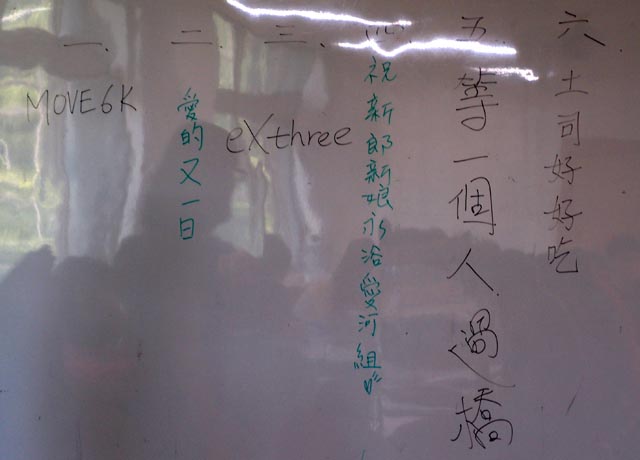 一、
MOVE6K
二、
愛的又一日
三、
eXthree
四
祝新郎新娘永浴愛河組
五、
等一個人過橋
六、
土司好好吃